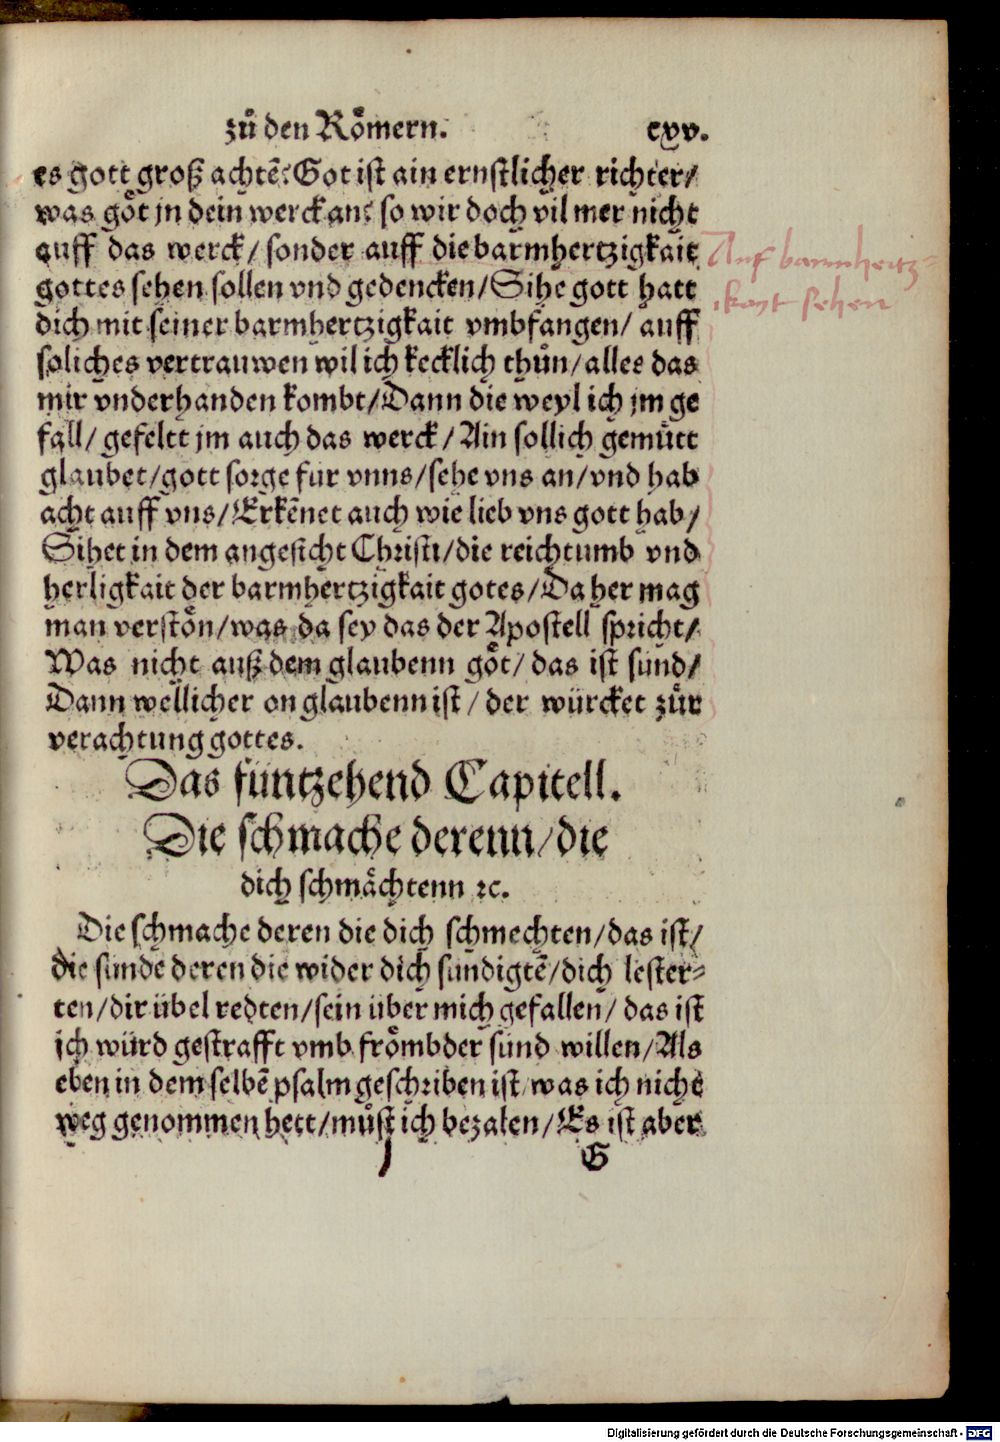 zů den Rômern. cxv.
es gott groß achtẽ? Got ist ain ernstlicher richter/
was gôt jn dein werck an? so wir doch vil mer nicht
auff das werck/ sonder auff die barmhertzigkait
gottes sehen sollen vnd gedencken/ Sihe gott hatt
dich mit seiner barmhertzigkait vmbfangen/ auff
soliches vertrauwen wil ich kecklich thůn/ alles das
mir vnderhanden kombt/ Dann die weyl ich jm ge
fall/ gefeltt jm auch das werck/ Ain sollich gemůtt
glaubet/ gott sorge fur vnns/ sehe vns an/ vnd hab
acht auff vns/ Erkẽnet auch wie lieb vns gott hab/
Sihet in dem angesicht Christi/ die reichtumb vnd
herligkait der barmhertzigkait gotes/ Da her mag
man verstôn/ was da sey das der Apostell spricht/
Was nicht auß dem glaubenn gôt/ das ist sünd/
Dann wellicher on glaubenn ist/ der würcket zůr
verachtung gottes.
Auf barmhertz-
ikayt sehen
Das füntzehend Capitell.
Die schmache derenn/ die
dich schmâchtenn ꝛc.
Die schmache deren die dich schmechten/ das ist/
die sünde deren die wider dich sündigtẽ/ dich lester-
ten/ dir übel redten/ sein über mich gefallen/ das ist
ich würd gestrafft vmb frômbder sünd willen/ Als
eben in dem selbẽ psalm geschriben ist/ was ich nicht
weg genommen hett/ můst ich bezalen/ Es ist aber
G
Digitalisierung gefördert durch die Deutsche Forschungsgemeinschaft - DFG